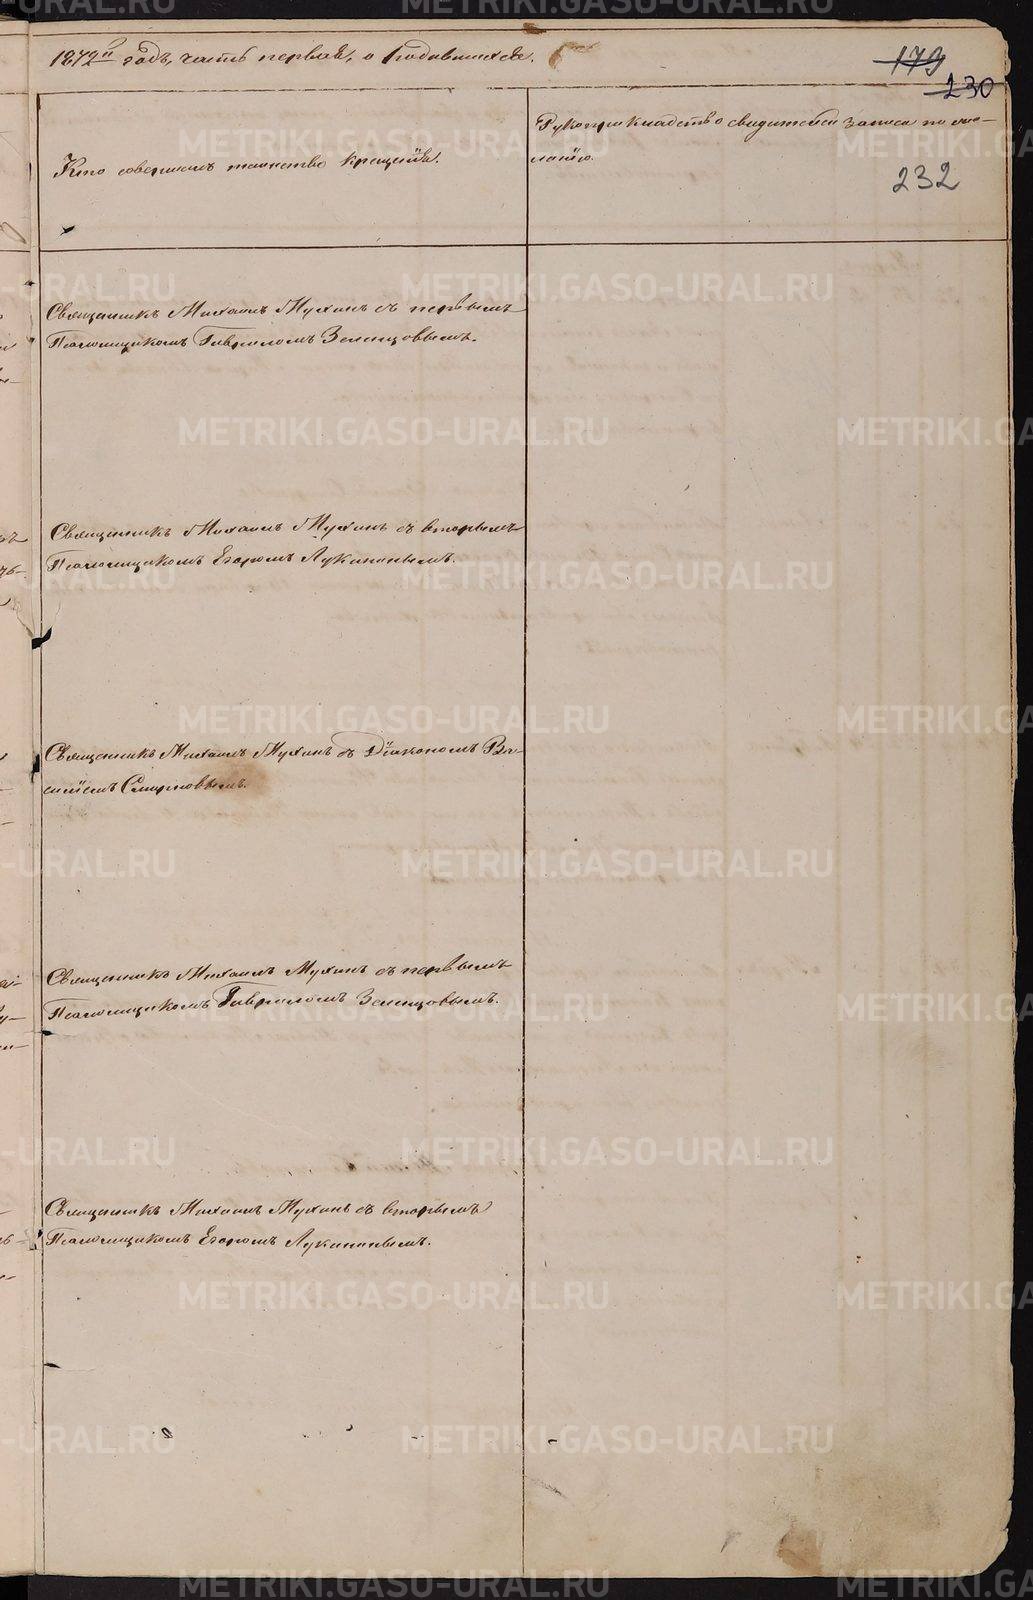 1872й годъ, часть первая, о Родившихся.
179
230
232
Кто совершилъ таинство крещенія.
Рукоприкладство свидѣтелей записи по же-
ланію.
Священникъ Михаилъ Мухинъ съ первымъ
Псаломщикомъ Гавриломъ Зеленцовымъ.
Священникъ Михаилъ Мухинъ съ вторымъ
Псаломщикомъ Егоромъ Лукинонымъ.
Священникъ Михаилъ Мухинъ съ Діакономъ Ва-
силіемъ Смирновымъ.
Священникъ Михаилъ Мухинъ съ первымъ
Псаломщикомъ Гавриломъ Зеленцовымъ.
Священникъ Михаилъ Мухинъ съ вторымъ
Псаломщикомъ Егоромъ Лукинонымъ.
METRIKI.GASO-URAL.RU